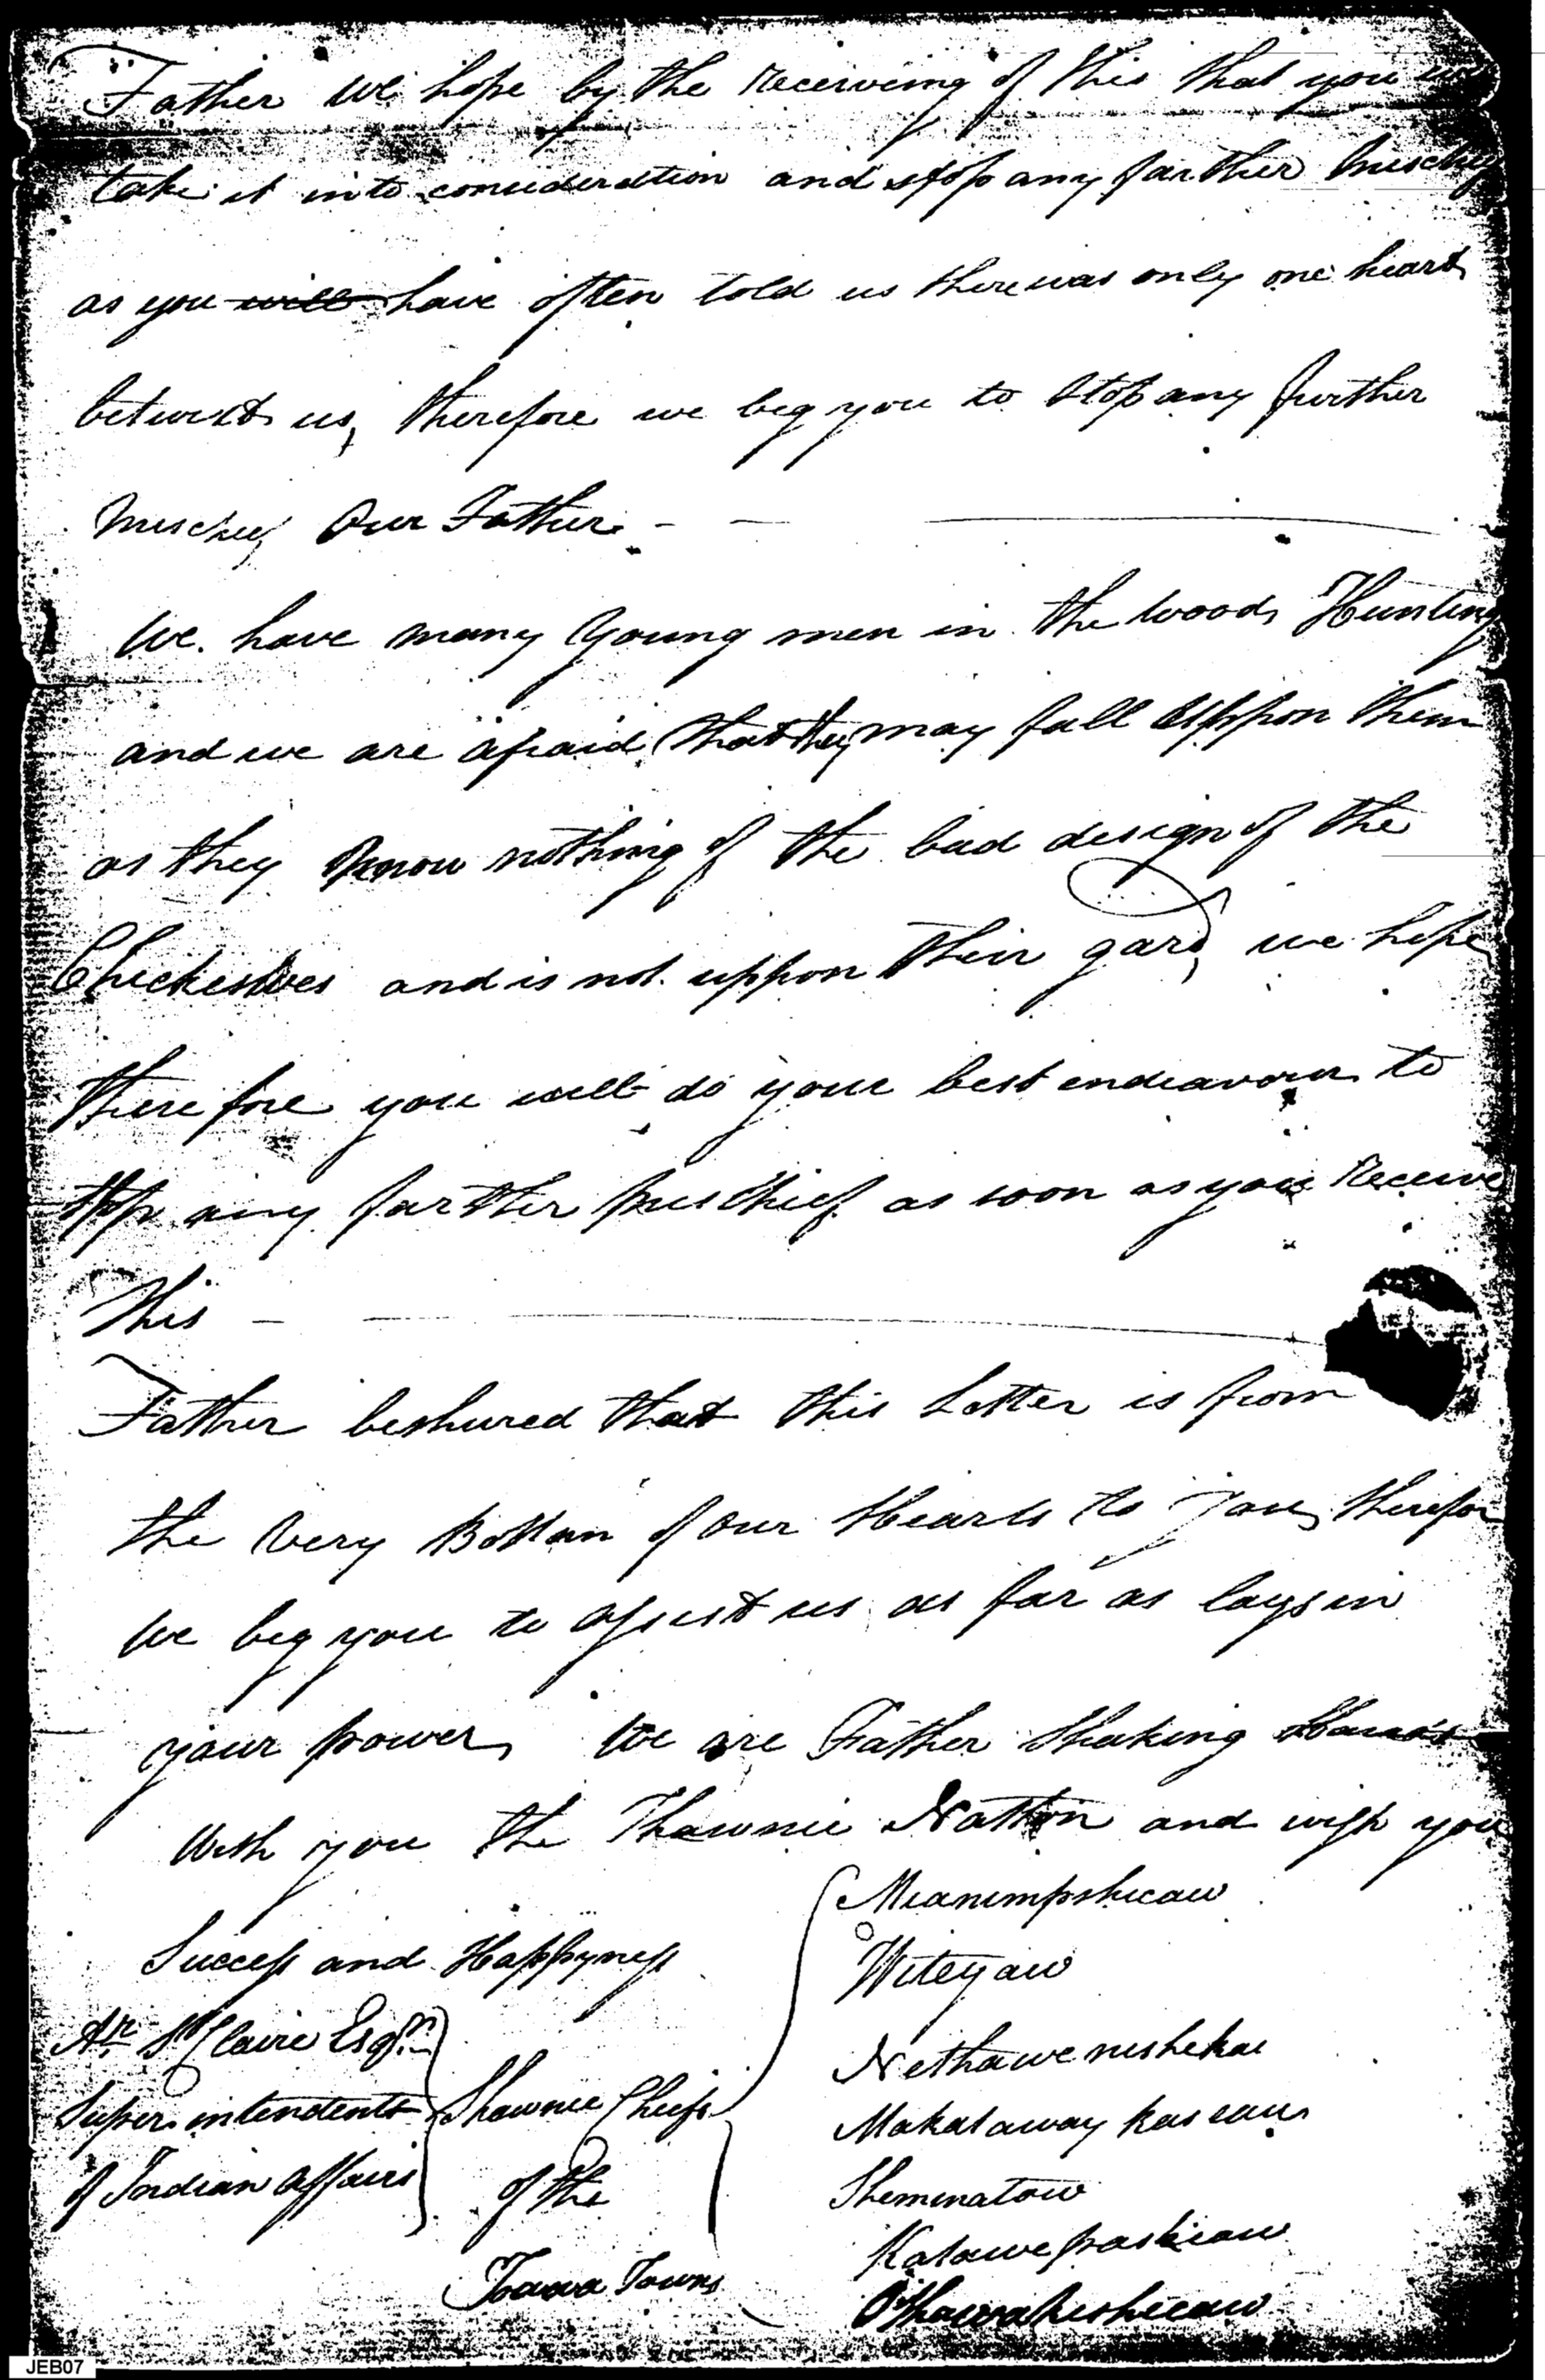 Father we hope by the Receiveing of this that you
take it into consideration and stop any farther Mischief
as you will have often told us there was only one heart
betwixt us, therefore we beg you to stop any further
Mischief Our Father. - —
We have many Young men in the Woods Hunting
and we are afraid that they may fall Uppon them
as they know nothing of the bad design of the
and is not uppon their gard, we hope
therefore you will do your best endeavour to
stop any farther Mischief as soon as you Receive
this —
Father beshured that this Letter is from
the Very Bottam of our Hearts to You, therefor
We beg you to assist us as far as lays in
your power, We are Father Shaking Hands
With you the Shawnie Nattion and wish you
Success and Happyness
Ar. St Claire Esqr.
Superintendent
of Indian Affairs
Shawnee Chiefs
of the
Towns
Mianimpshicaw
Witeyaw
Nethawenishekae
Sheminatow